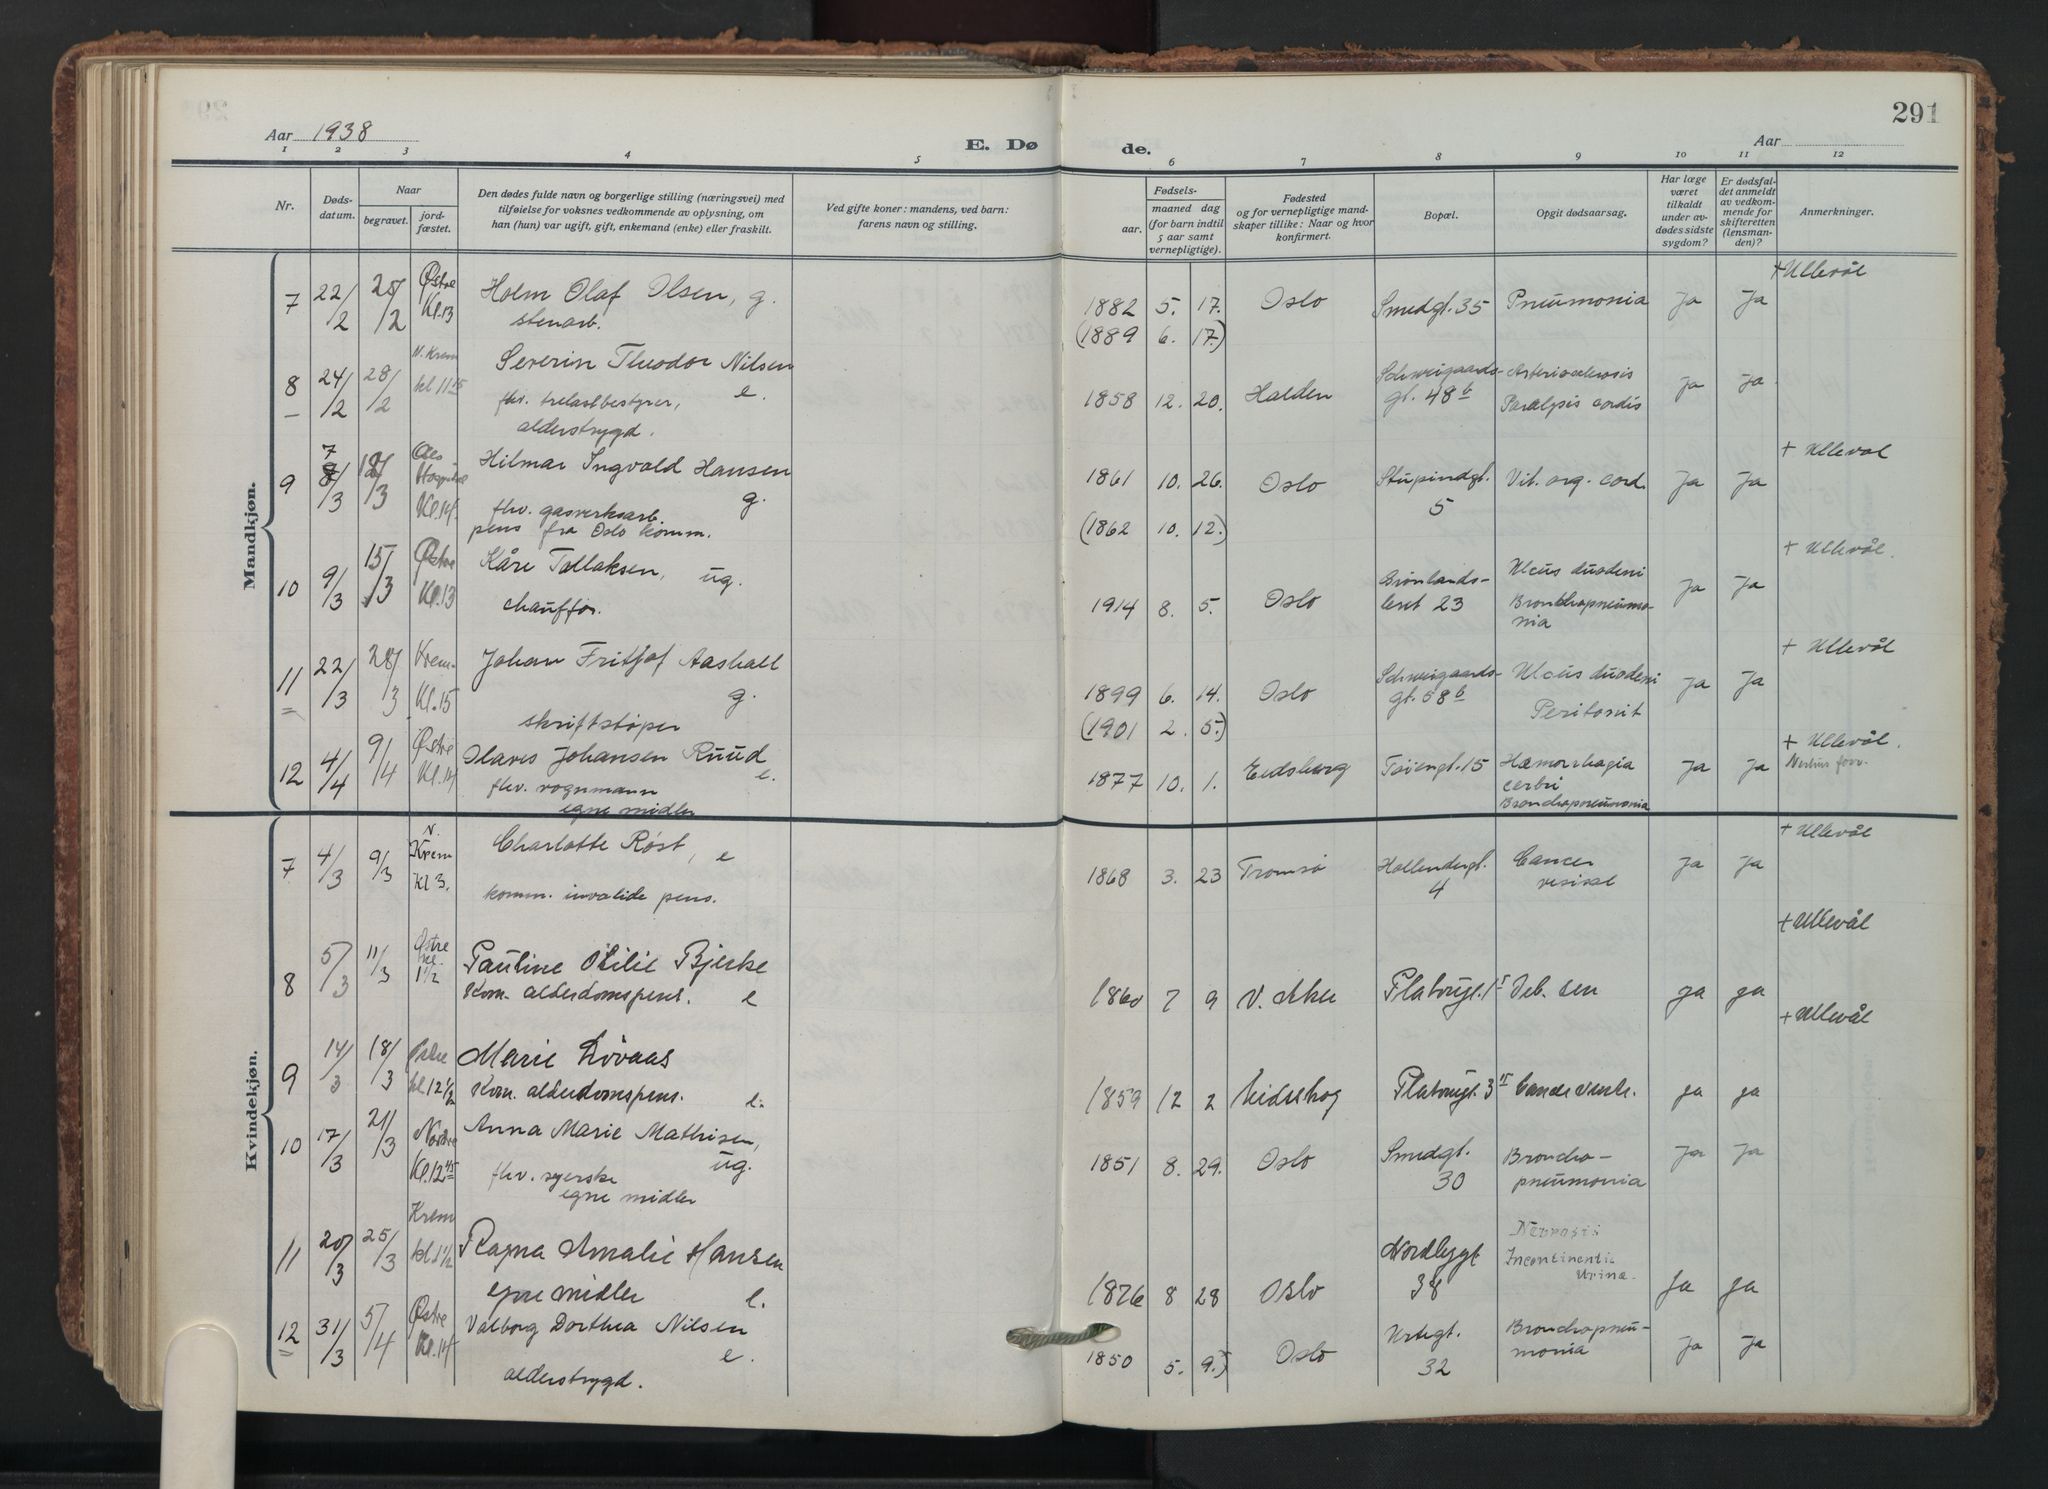 291
Aar 1938
E. Dø
de.
Aar
1 2 3 4 5 6 7 8 9 10 11 12
Nr.
Døds-
datum.
Naar
begravet.
jord-
fæstet.
Den dødes fulde navn og borgerlige stilling (næringsvei) med
tilføielse for voksnes vedkommende av oplysning, om
han (hun) var ugift, gift, enkemand (enke) eller fraskilt.
Ved gifte koner: mandens, ved barn:
farens navn og stilling.
Fødsels-
aar.
maaned dag
(for barn indtil
5 aar samt
vernepligtige).
Fødested
og for vernepligtige mand-
skaper tillike: Naar og hvor
konfirmert.
Bopæl.
Opgit dødsaarsag.
Har læge
været
tilkaldt
under av-
dødes sidste
sygdom?
Er dødsfal-
det anmeldt
av vedkom-
mende for
skifteretten
(lensman-
den)?
Anmerkninger.
Mandkjøn.
7 22/2 25/2 Østre Kl.13 Holm Olaf Olsen, g.
stenarb.
1882 5. 17. Oslo Smedgt. 35 Pneumonia Ja Ja + Ullevål
(1889 6. 17.)
8 24/2 28/2 N. Krem kl 11 15 Severin Theodor Nilsen
fhv. trelastbestyrer, e.
alderstrygd.
1858 12. 20. Halden Schweigaards-
gt. 48b Arteriosclerosis
Paralysis cordis Ja Ja
9 7/3 12/3 Kl.14. Hilmar Ingvald Hansen
g.
fhv. gasverksarb.
pens fra Oslo komm.
1861 10. 26. Oslo Stupindgt.
5 Vit. org. cord. Ja Ja + Ullevål
(1862 10. 12.)
10 9/3 15/3 Østre Kl.13 Kåre Tallaksen, ug.
chauffør.
1914 8. 5. Oslo Grønlands-
leret 23 Ulcus duodeni
Bronchopneumo-
nia Ja Ja + Ullevål.
11 22/3 28/3 Krem. Kl.15 Johan Fritjof Aashall
g.
skriftstøper
1899 6. 14. Oslo Schweigaards-
gt. 58b Ulcus duodeni
Peritonit Ja Ja + Ullevål
(1901 2. 5.)
12 4/4 9/4 Østre Kl.14 Olaves Johansen Ruud
fhv. vognmann e.
egne midler
1877 10. 1. Eidsberg Tøiengt. 15 Hæmorrhagia
cerbri
Bronchopneumonia Ja Ja + Ullevål.
Kvindekjøn.
7 4/3 9/3 N. Krem Kl 3. Charlotte Røst, e
komm. invalide pens.
1868 3. 23 Tromsø Hollendergt.
4 Cancer
vesicae Ja Ja + Ullevål
8 5/3 11/3 Østre kl. 1 1/2 Pauline Otilie Bjerke
Kom. alderdomspens. e
1860 7 9 V. Aker Platougt. 1 Deb. sen ja ja + Ullevål
9 14/3 18/3 Østre kl 12 1/2 Marie Løvaas
Kom. alderdomspens. e.
1859 12 2 Eidskog Platougt. 3 Cancer ventr. ja ja + Ullevål
10 17/3 21/3 Nordre Kl.12 45 Anna Marie Mathisen,
fhv. syerske ug.
egne midler
1851 8. 29. Oslo Smedgt.
30 Broncho-
pneumonia Ja Ja
11 20/3 25/3 Krem kl 1 1/2 Ragna Amalie Hansen
egne midler e.
1876 8 28 Oslo Nordbygt
38 Nevrosis
Incontinentia
Urina. Ja ja
12 31/3 5/4 Østre Kl.14 Valborg Dorthea Nilsen
e.
alderstrygd.
1850 5. 9.) Oslo Urtegt.
32 Bronchopneu-
monia Ja Ja